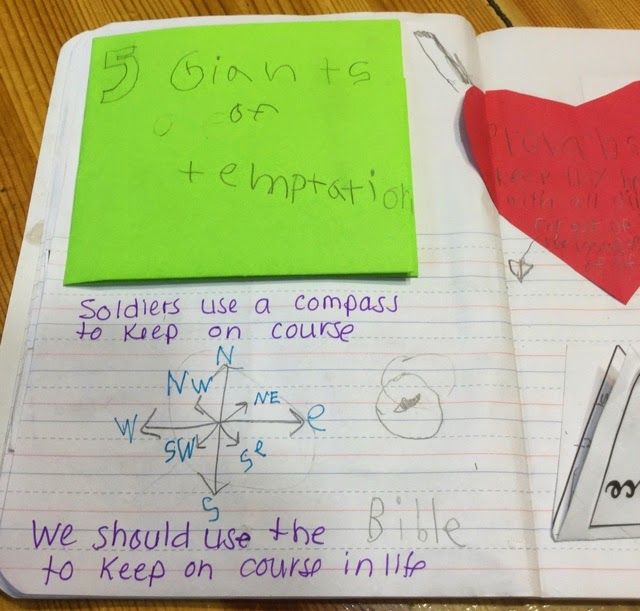 5 Giants
of
temptation
Soldiers use a compass
to keep on course
N
NW
NE
W
e
SW
Se
S
We should use the Bible
to keep on course in life
with all